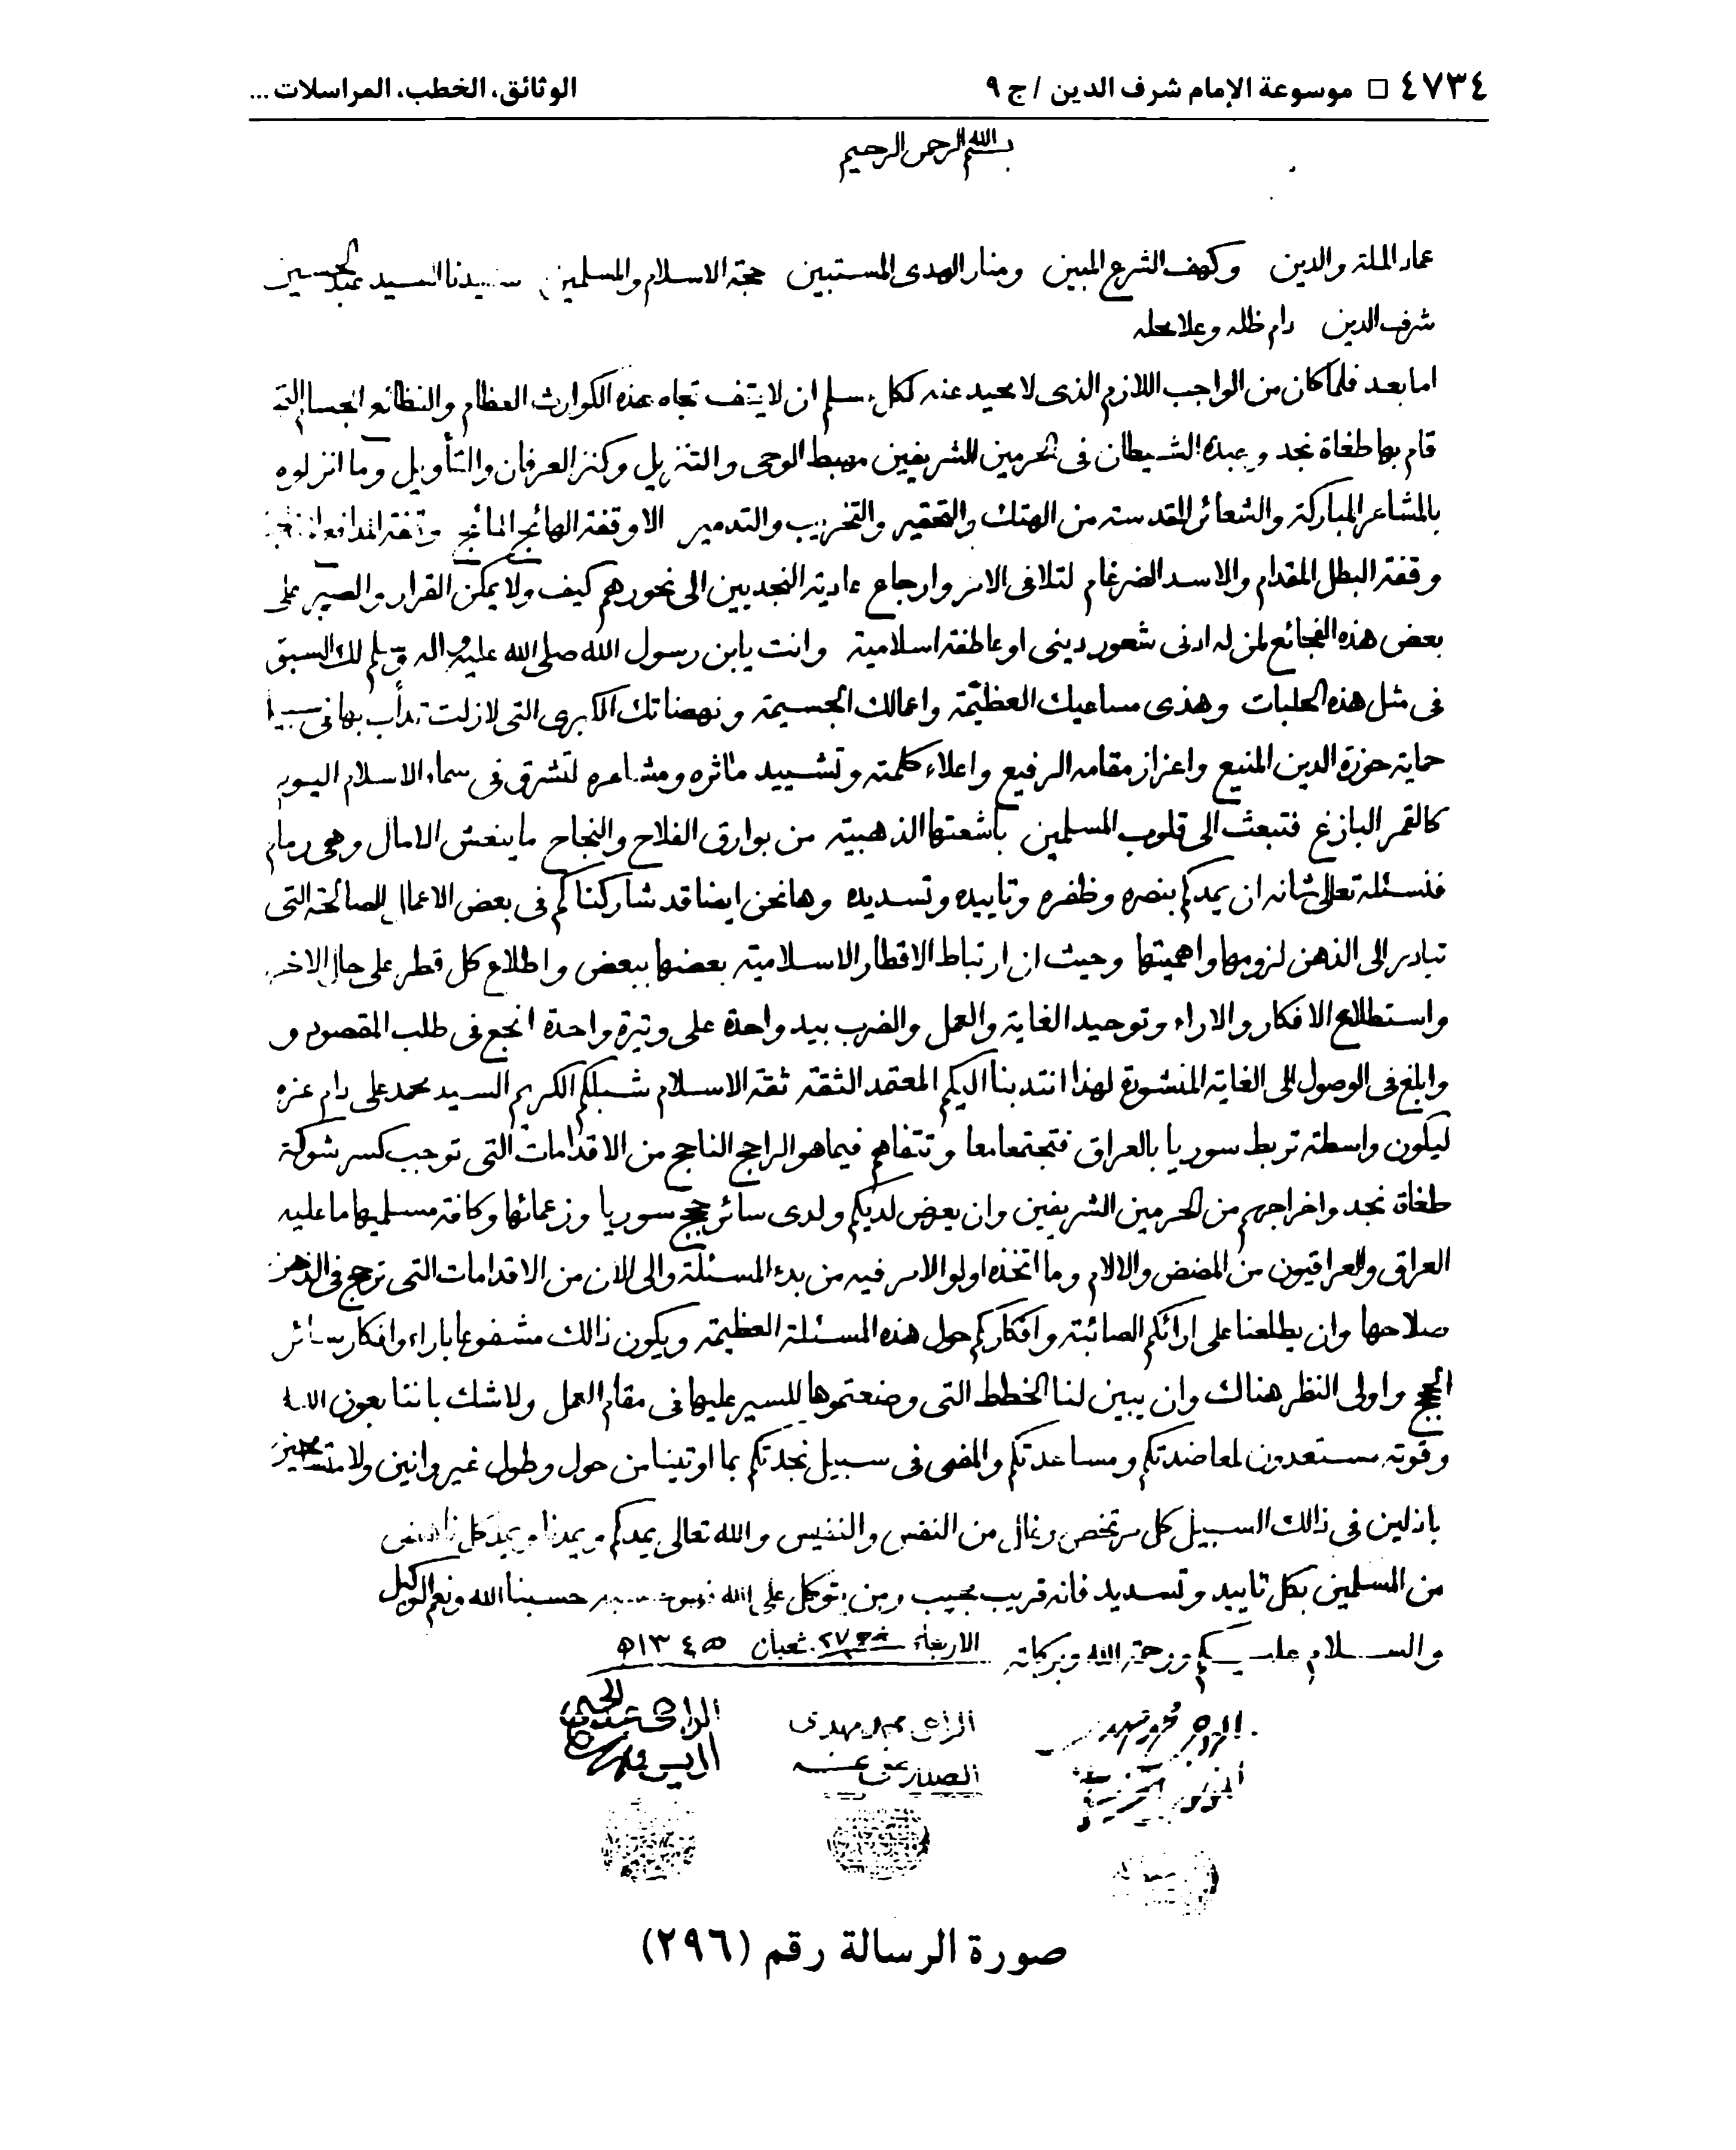 ٤٧٣٤ □ موسوعة الإمام شرف الدين / ج ٩
الوثائق، الخطب، المراسلات ...
بسم الله الرحمن الرحيم
عماد الملة والدين وكهف الشرع المبين ومنار الهدى المستبين حجة الاسلام والمسلمين سيدنا السيد عبد الحسين
شرف الدين دام ظله وعلا محله
اما بعد فلما كان من الواجب اللازم الذى لا محيد عنه لكل مسلم ان لا يقف تجاه هذه الكوارث العظام والفظائع الجسام التى
قام بها طغاة نجد وعبدة الشيطان فى الحرمين الشريفين مهبط الوحى والتنزيل وكنز العرفان والتأويل وما انزلوه
بالمشاعر المباركة والشعائر المقدسة من الهتك والتحقير والتخريب والتدمير الا وقفة الهائج المائج وقفة المدافع
وقفة البطل المقدام والاسد الضرغام لتلافى الامر وارجاع عادية النجديين الى نحورهم كيف ولا يمكن القرار والصبر على
بعض هذه الفجائع لمن له ادنى شعور دينى او عاطفة اسلامية وانت يابن رسول الله صلى الله عليه واله وسلم لك السبق
فى مثل هذه الحلبات وهذى مساعيك العظيمة واعمالك الجسيمة ونهضاتك الكبرى التى لازلت تدأب بها فى سبيل
حماية حوزة الدين المنيع واعزاز مقامه الرفيع واعلاء كلمته وتشييد مأثره ومشاعره لتشرق فى سماء الاسلام اليوم
كالقمر البازغ فتبعث الى قلوب المسلمين باشعتها الذهبية من بوارق الفلاح والنجاح ما ينعش الامال وهى رمام
فنسئله تعالى شانه ان يمدكم بنصره وظفره وتاييده وتسديده وها نحن ايضا قد شاركناكم فى بعض الاعمال الصالحة التى
تبادر الى الذهن لزومها واهميتها وحيث ان ارتباط الاقطار الاسلامية بعضها ببعض واطلاع كل قطر على حال الاخر
واستطلاع الافكار والاراء وتوحيد الغاية والعمل والضرب بيد واحدة على وتيرة واحدة انجع فى طلب المقصود و
وابلغ فى الوصول الى الغاية المنشودة لهذا انتدبنا اليكم المعتمد الثقة ثقة الاسلام شبلكم الكريم السيد محمد على دام عزه
ليكون واسطة تربط سوريا بالعراق فتجتمعا معا وتتفاهم فيما هو الراجح الناجح من الاقدامات التى توجب كسر شوكة
طغاة نجد واخراجهم من الحرمين الشريفين وان يعرض لديكم ولدى سائر حجج سوريا وزعمائها وكافة مسلميها ما عليه
العراق والعراقيون من المضض والالام وما اتخذه اولوا الامر فيه من بدء المسئلة والى الان من الاقدامات التى ترجح فى الذهن
صلاحها وان يطلعنا على ارائكم الصائبة وافكاركم حول هذه المسئلة العظيمة ويكون ذالك مشفوعا باراء وافكار سائر
الحجج واولى النظر هناك وان يبين لنا الخطط التى وضعتموها للسير عليها فى مقام العمل ولا شك باننا بعون الله
وقوته مستعدون لمعاضدتكم ومساعدتكم والمضى فى سبيل نجدتكم بما اوتينا من حول وطول غير وانين ولا
باذلين فى ذالك السبيل كل مرتخص وغال من النفس والنفيس والله تعالى يمدكم ويمدنا ويمد كل ناهض
من المسلمين بكل تاييد وتسديد فانه قريب مجيب ومن يتوكل على الله فهو حسبه حسبنا الله ونعم الوكيل
والسلام عليكم ورحمة الله وبركاته الاربعاء ٢٧ شعبان ١٣٤٥
الراجى محمد مهدى
الصدر عفى عنه
صورة الرسالة رقم (٢٩٦)